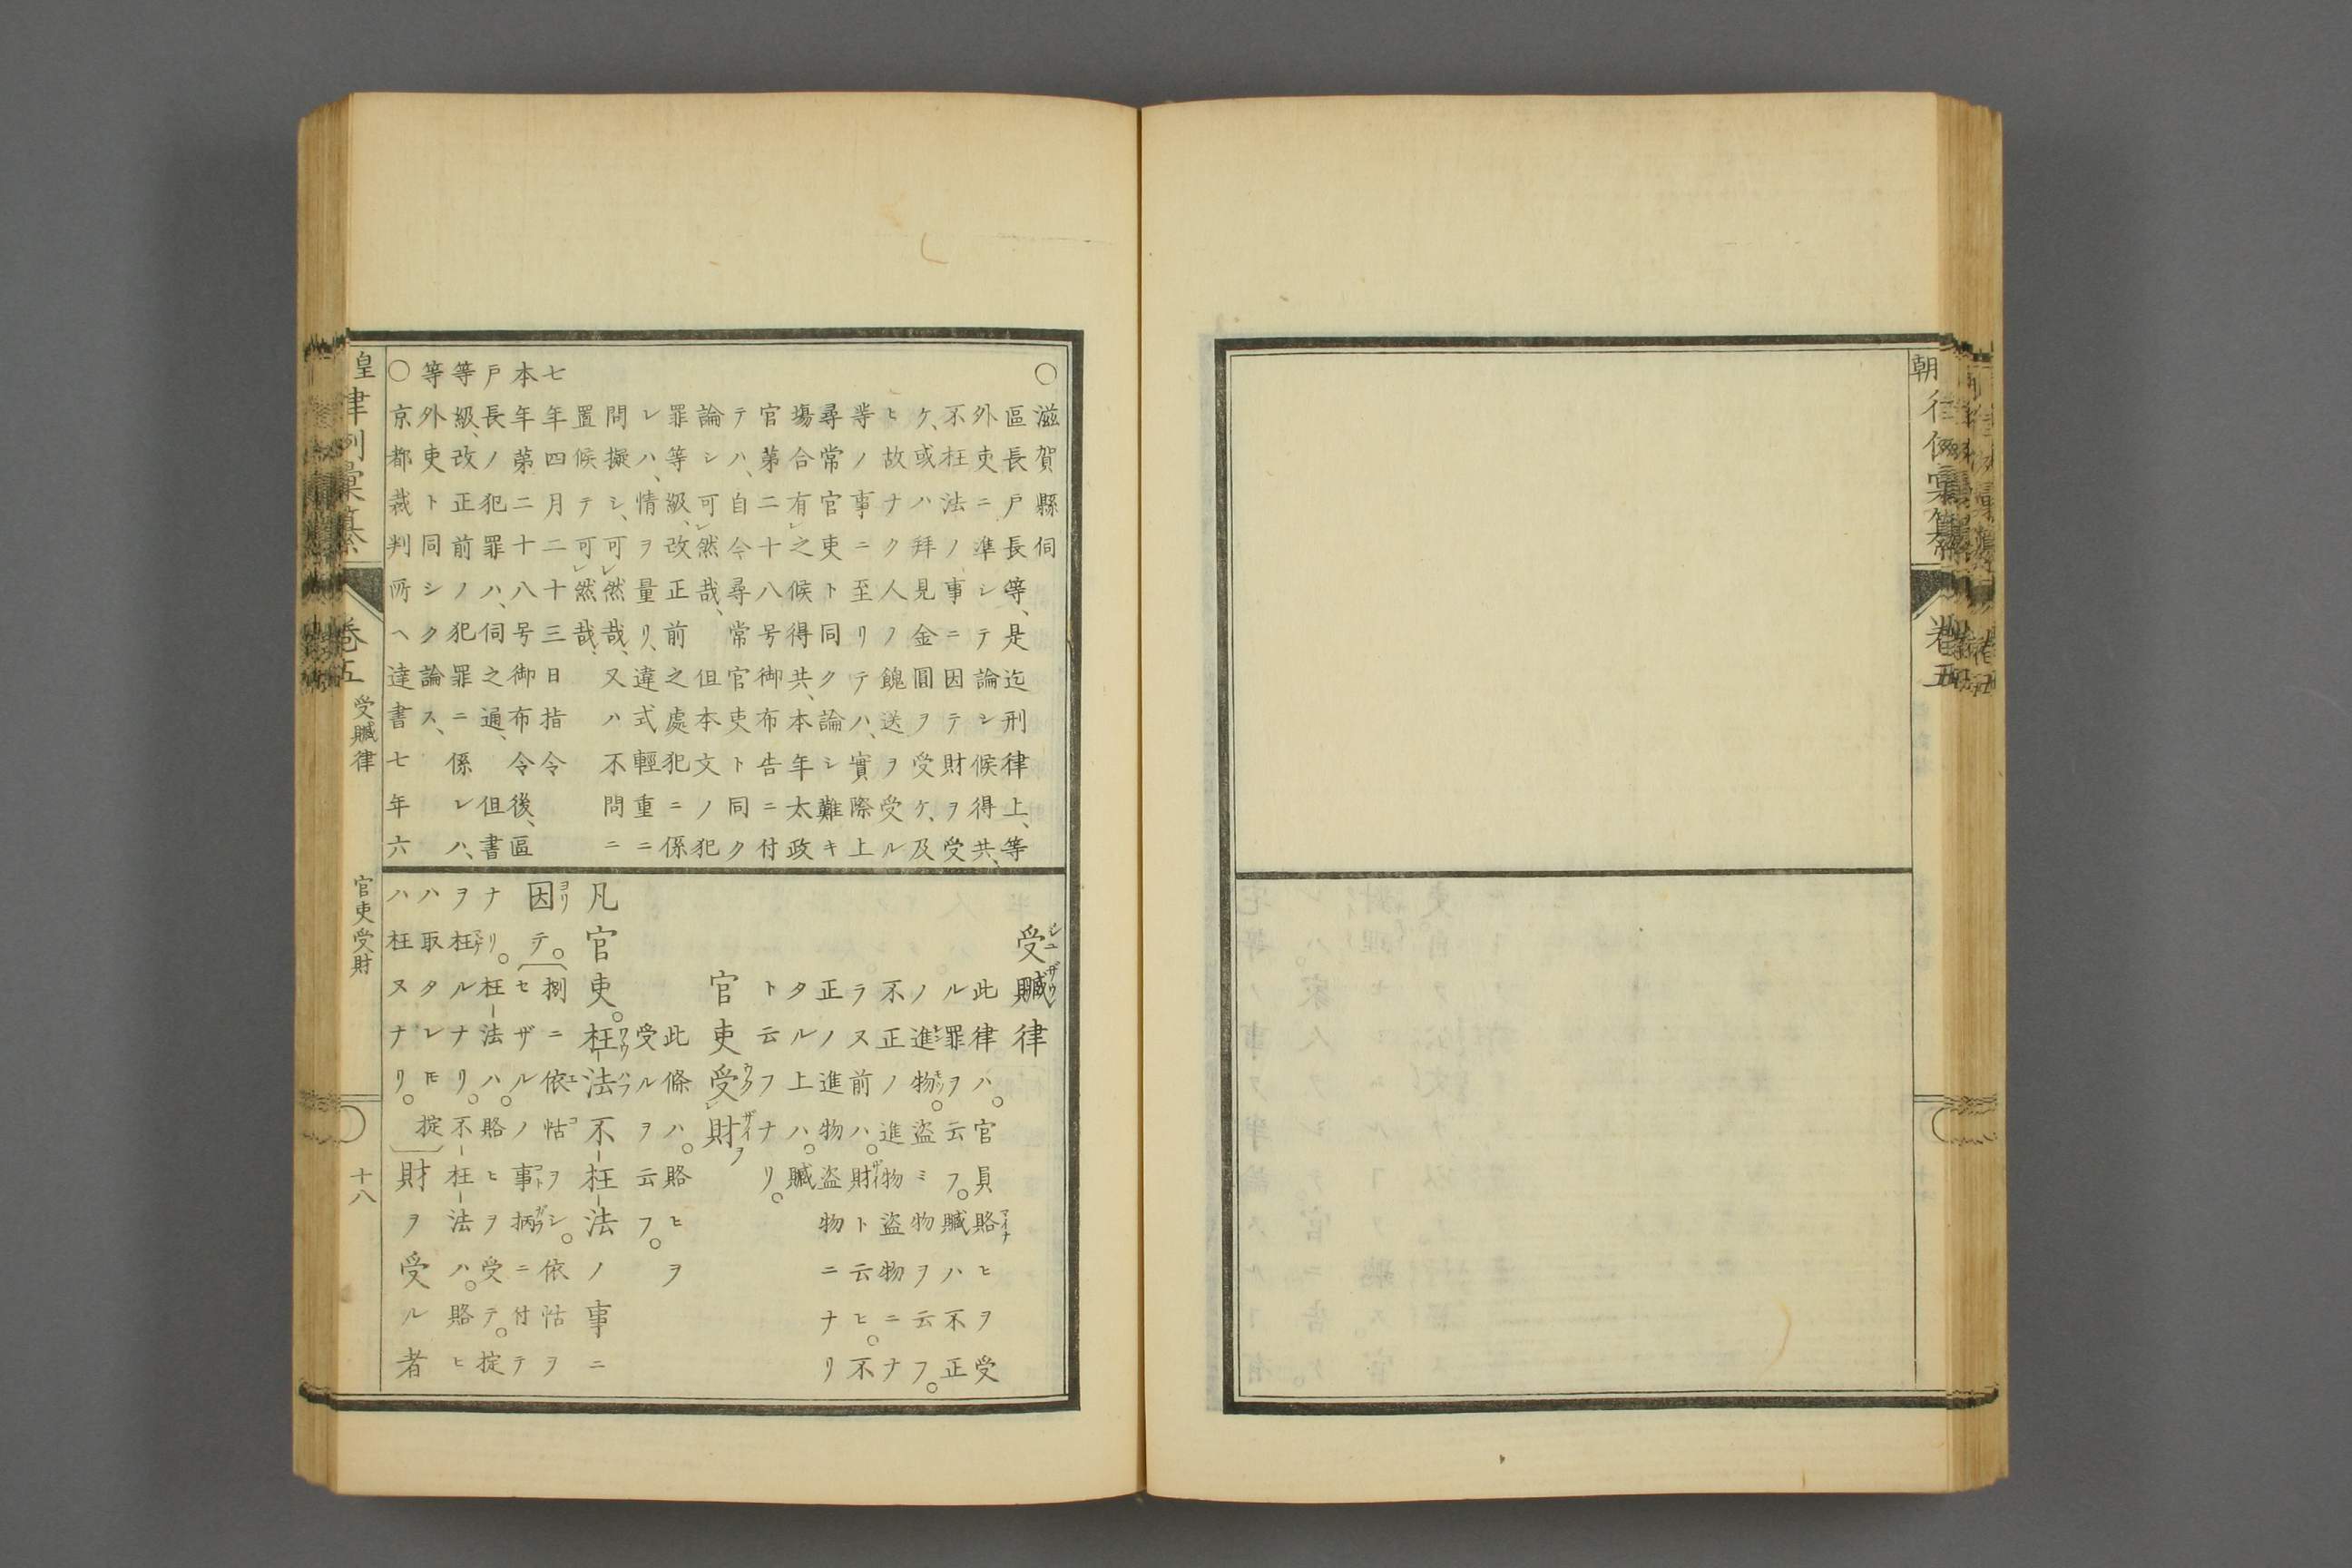 朝
卷五
○滋賀縣伺
區長戸長等、是迄刑律上、等
外吏ニ準シテ論シ候得共、
不枉法ノ事ニ因テ財ヲ受
ケ、或ハ拜見金圓ヲ受ケ、及
ヒ故ナク人ノ餽送ヲ受ル
等ノ事ニ至リテハ、實際上
尋常官吏ト同ク論シ難キ
塲合有レ之候得共、本年太政
官第二十八号御布告ニ付
テハ、自今尋常官吏ト同ク
論シ可レ然哉、但本文ノ犯
罪等級、改正前之處犯ニ係
レハ、情ヲ量リ、違式輕重ニ
問擬シ、可レ然哉、又ハ不問ニ
置候テ可レ然哉、
七年四月二十三日指令
本年第二十八号御布令後、區
戸長ノ犯罪ハ、伺之通、但書
等級、改正前ノ犯罪ニ係レハ、
等外吏ト同シク論ス、
○京都裁判所ヘ達書七年六
受贓律
此律ハ。官員賂ヒヲ受
ル罪ヲ云フ。贓ハ不正
ノ進物。盗ミ物ヲ云フ。
不正ノ進物盗物ニナ
ラス前ハ。財ト云ヒ。不
正ノ進物盗物ニナリ
タル上ハ。贓
ト云フナリ。
官吏受レ財
此條ハ。賂ヒヲ
受ルヲ云フ。
凡官吏。枉法不枉法ノ事ニ
因テ。捌ニ依怙ヲシ。依怙ヲ
セザル。ノ事柄ニ付テ
ナリ。枉法ハ。賂ヒヲ受テ。掟
ヲ枉ルナリ。不枉法ハ。賂ヒ
ハ取タレ𪜈掟
ハ枉ヌナリ。財ヲ受ル者
皇律例彙纂 卷五 受贓律 官吏受財 十八